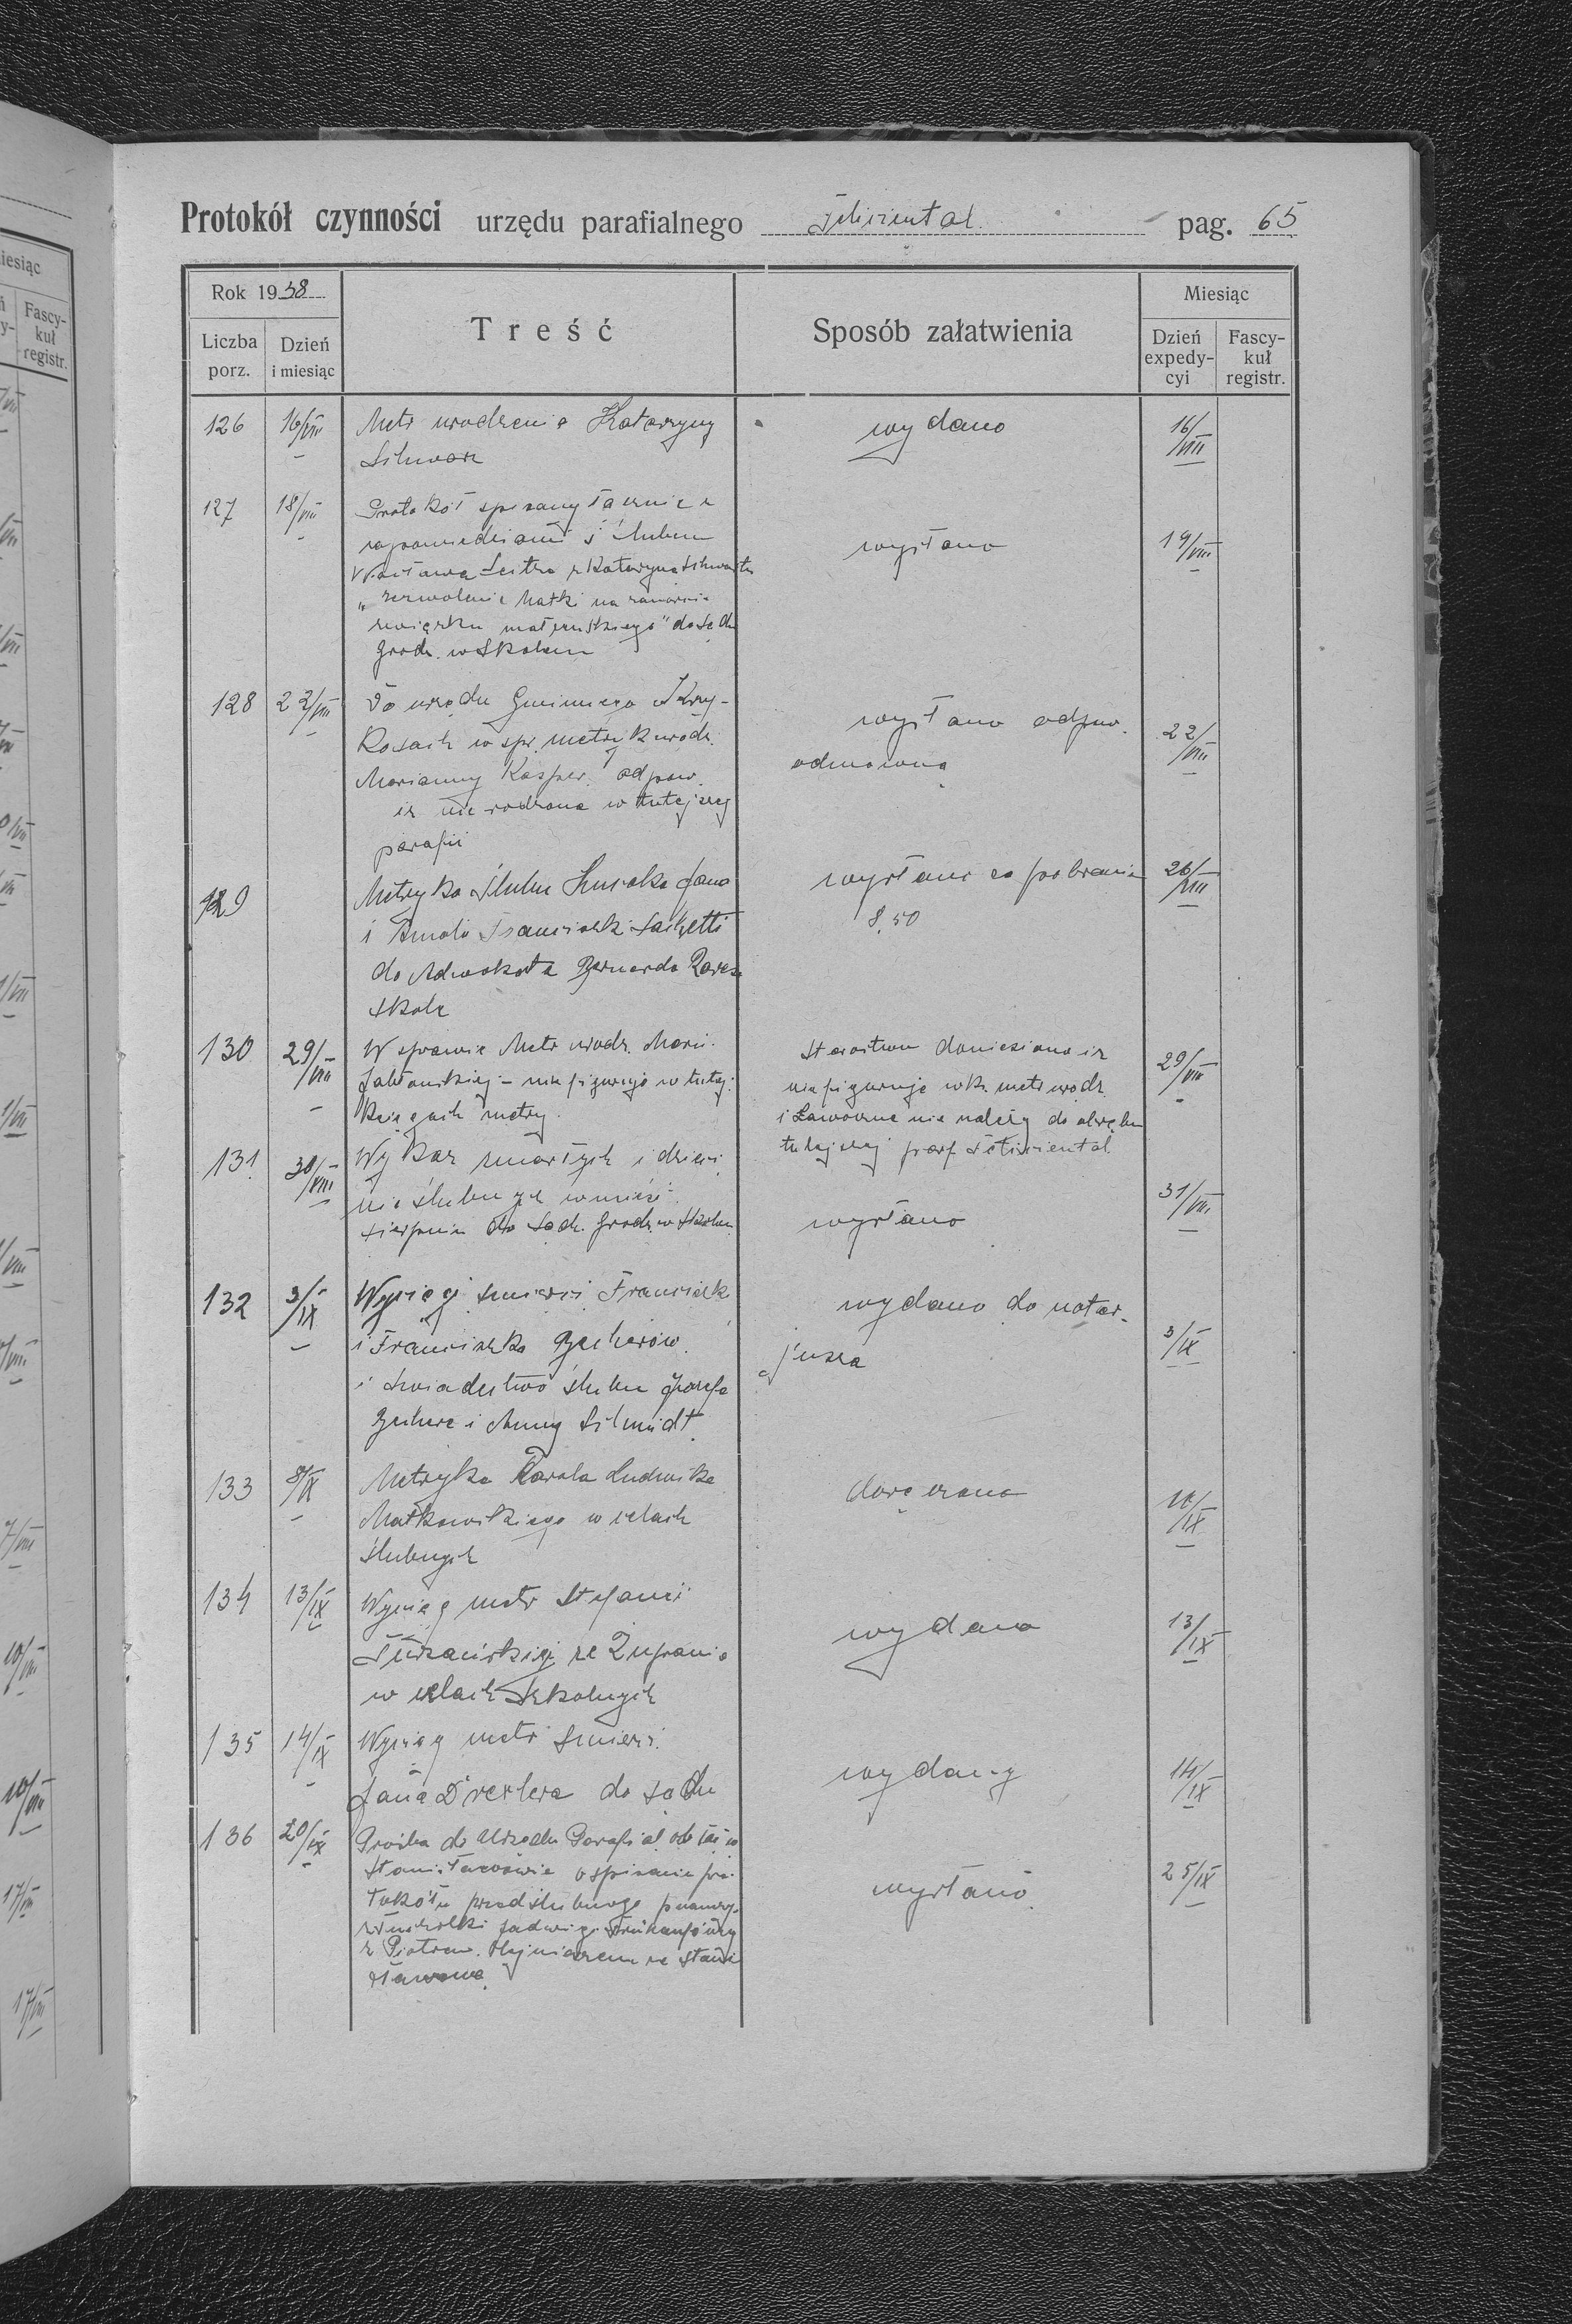 Protokół czynności urzędu parafialnego Feliciental pag. 65
Rok 1938
Liczba porz.
Dzień i miesiąc
Treść
Sposób załatwienia
Miesiąc
Dzień expedycyi
Fascykuł registr.
126 16/VIII Metr urodzenia Katarzyny wydano 16/VIII
127 18/VIII Protokół spisany łącznie z
zapowiedziami i ślubem wysłano 19/VIII
Wacława z Katarzyną
"zezwolenie Matki na zawarcie
związku małżeńskiego" do Sądu
Grodz. w Skolem
128 22/VIII Do urzędu Gminnego
w spr. metryk urodz. wysłano odpow. 22/VIII
Marianny Kasper. odpow. odmowną
iż nie rodzona w tutejszej
parafii
129 Metryka Ślubu Jana wysłano za pobraniem 26/VIII
i 8.50
do Adwokata Bernarda
Skole
130 29/VIII W sprawie Metr urodz. Marii Starostwu doniesiono iż 29/VIII
Jabłońskiej - nie figuruje w tutej. nie figuruje w k. metr urodz.
księgach metry. i Ławoczne nie należy do obrębu
tutejszej paraf Feliciental
131. 30/VIII Wykaz zmarłych i dzieci 31/VIII
nieślubnych w mieś.
sierpniu do Sądu Grodz. w Skolem wysłano
132 3/IX Wyciągi śmierci wydano do notar-
i Franciszka jusza 3/IX
i świadectwo ślubu Józefa
i Anny Schmidt
133 8/IX Metryka Karola Ludwika doręczono 10/IX
Matkowskiego w celach
ślubnych
134 13/IX Wyciąg metr Stefanii wydano 13/IX
ze Żupania
w celach szkolnych
135 14/IX Wyciąg metr śmierci wydany 14/IX
Jana Drexlera do sądu
136 20/IX Prośba do Urzędu Parafial. w
Stanisławowie o spisanie pro- 25/IX
tokółu przedślubnego wysłano
Jadwigi
z Piotrem ze Stani
sławowa